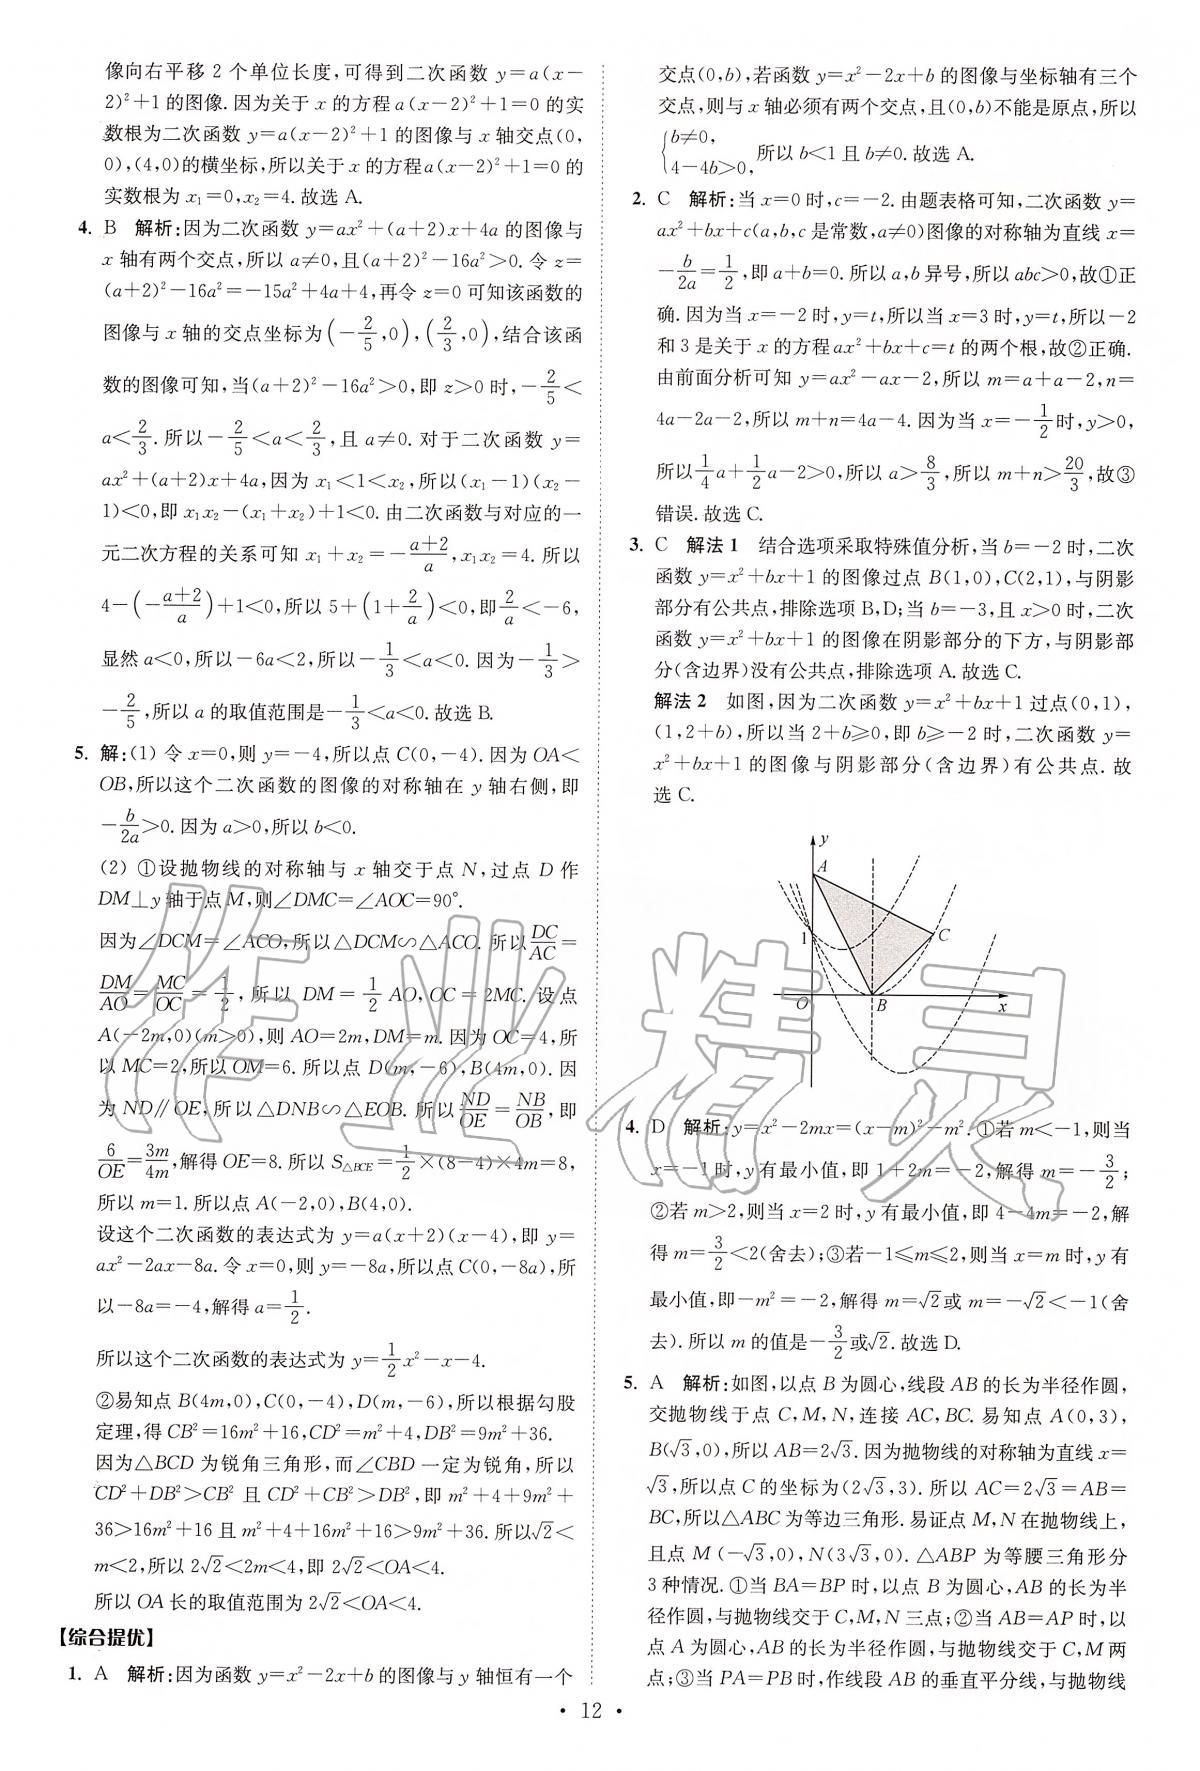 像向右平移 2 个单位长度,可得到二次函数 y=a(x-
2)²+1 的图像. 因为关于 x 的方程 a(x-2)²+1=0 的实
数根为二次函数 y=a(x-2)²+1 的图像与 x 轴交点(0,
0),(4,0)的横坐标,所以关于 x 的方程a(x-2)²+1=0的
实数根为 x₁=0,x₂=4. 故选 A.
4. B 解析:因为二次函数 y=ax²+(a+2)x+4a 的图像与
x 轴有两个交点,所以 a≠0,且(a+2)²-16a²>0. 令 z=
(a+2)²-16a²=-15a²+4a+4,再令 z=0 可知该函数的
图像与 x 轴的交点坐标为(-2/5,0),(2/3,0),结合该函
数的图像可知,当(a+2)²-16a²>0,即 z>0 时,-2/5<
a<2/3. 所以-2/5<a<2/3,且 a≠0. 对于二次函数 y=
ax²+(a+2)x+4a,因为 x₁<1<x₂,所以(x₁-1)(x₂-
1)<0,即 x₁x₂-(x₁+x₂)+1<0. 由二次函数与对应的一
元二次方程的关系可知 x₁+x₂=-(a+2)/a,x₁x₂=4. 所以
4-(-(a+2)/a)+1<0,所以 5+(1+2/a)<0,即2/a<-6,
显然 a<0,所以-6a<2,所以-1/3<a<0. 因为-1/3>
-2/5,所以 a 的取值范围是-1/3<a<0. 故选 B.
5. 解:(1) 令 x=0,则 y=-4,所以点 C(0,-4). 因为 OA<
OB,所以这个二次函数的图像的对称轴在 y 轴右侧,即
-b/2a>0. 因为 a>0,所以 b<0.
(2) ①设抛物线的对称轴与 x 轴交于点 N,过点 D 作
DM⊥y 轴于点 M,则∠DMC=∠AOC=90°.
因为∠DCM=∠ACO,所以△DCM∽△ACO. 所以DC/AC=
DM/AO=MC/OC=1/2,所以 DM=1/2 AO,OC=2MC. 设点
A(-2m,0)(m>0),则 AO=2m,DM=m. 因为 OC=4,所
以 MC=2,所以 OM=6. 所以点 D(m,-6),B(4m,0). 因
为 ND∥OE,所以△DNB∽△EOB. 所以ND/OE=NB/OB,即
6/OE=3m/4m,解得 OE=8. 所以 S△BCE=1/2×(8-4)×4m=8,
所以 m=1. 所以点 A(-2,0),B(4,0).
设这个二次函数的表达式为 y=a(x+2)(x-4),即 y=
ax²-2ax-8a. 令 x=0,则 y=-8a,所以点 C(0,-8a),所
以-8a=-4,解得 a=1/2.
所以这个二次函数的表达式为 y=1/2x²-x-4.
②易知点 B(4m,0),C(0,-4),D(m,-6),所以根据勾股
定理,得 CB²=16m²+16,CD²=m²+4,DB²=9m²+36.
因为△BCD 为锐角三角形,而∠CBD 一定为锐角,所以
CD²+DB²>CB² 且 CD²+CB²>DB²,即 m²+4+9m²+
36>16m²+16 且 m²+4+16m²+16>9m²+36. 所以√2<
m<2,所以 2√2<2m<4,即 2√2<OA<4.
所以 OA 长的取值范围为 2√2<OA<4.
【综合提优】
1. A 解析:因为函数 y=x²-2x+b 的图像与 y 轴恒有一个
交点(0,b),若函数 y=x²-2x+b 的图像与坐标轴有三个
交点,则与 x 轴必须有两个交点,且(0,b)不能是原点,所以
{b≠0,
4-4b>0, 所以 b<1 且 b≠0. 故选 A.
2. C 解析:当 x=0 时,c=-2. 由题表格可知,二次函数 y=
ax²+bx+c(a,b,c 是常数,a≠0)图像的对称轴为直线 x=
-b/2a=1/2,即 a+b=0. 所以 a,b 异号,所以 abc>0,故①正
确. 因为当 x=-2 时,y=t,所以当 x=3 时,y=t,所以-2
和 3 是关于 x 的方程 ax²+bx+c=t 的两个根,故②正确.
由前面分析可知 y=ax²-ax-2,所以 m=a+a-2,n=
4a-2a-2,所以 m+n=4a-4. 因为当 x=-1/2时,y>0,
所以1/4a+1/2a-2>0,所以 a>8/3,所以 m+n>20/3,故③
错误. 故选 C.
3. C 解法 1 结合选项采取特殊值分析,当 b=-2 时,二次
函数 y=x²+bx+1 的图像过点 B(1,0),C(2,1),与阴影
部分有公共点,排除选项 B,D;当 b=-3,且 x>0 时,二次
函数 y=x²+bx+1 的图像在阴影部分的下方,与阴影部
分(含边界)没有公共点,排除选项 A. 故选 C.
解法 2 如图,因为二次函数 y=x²+bx+1 过点(0,1),
(1,2+b),所以当 2+b≥0,即 b≥-2 时,二次函数 y=
x²+bx+1 的图像与阴影部分(含边界)有公共点. 故
选 C.
y
A
1
C
O
B
x
4. D 解析:y=x²-2mx=(x-m)²-m². ①若 m<-1,则当
x=-1 时,y 有最小值,即 1+2m=-2,解得 m=-3/2;
②若 m>2,则当 x=2 时,y 有最小值,即 4-4m=-2,解
得 m=3/2<2(舍去);③若-1≤m≤2,则当 x=m 时,y 有
最小值,即-m²=-2,解得 m=√2或 m=-√2<-1(舍
去). 所以 m 的值是-3/2或√2. 故选 D.
5. A 解析:如图,以点 B 为圆心,线段 AB 的长为半径作圆,
交抛物线于点 C,M,N,连接 AC,BC. 易知点 A(0,3),
B(√3,0),所以 AB=2√3. 因为抛物线的对称轴为直线 x=
√3,所以点 C 的坐标为(2√3,3). 所以 AC=2√3=AB=
BC,所以△ABC 为等边三角形. 易证点 M,N 在抛物线上,
且点 M (-√3,0),N(3√3,0). △ABP 为等腰三角形分
3 种情况. ①当 BA=BP 时,以点 B 为圆心,AB 的长为半
径作圆,与抛物线交于 C,M,N 三点;②当 AB=AP 时,以
点 A 为圆心,AB 的长为半径作圆,与抛物线交于 C,M 两
点;③当 PA=PB 时,作线段 AB 的垂直平分线,与抛物线
作业精灵
• 12 •